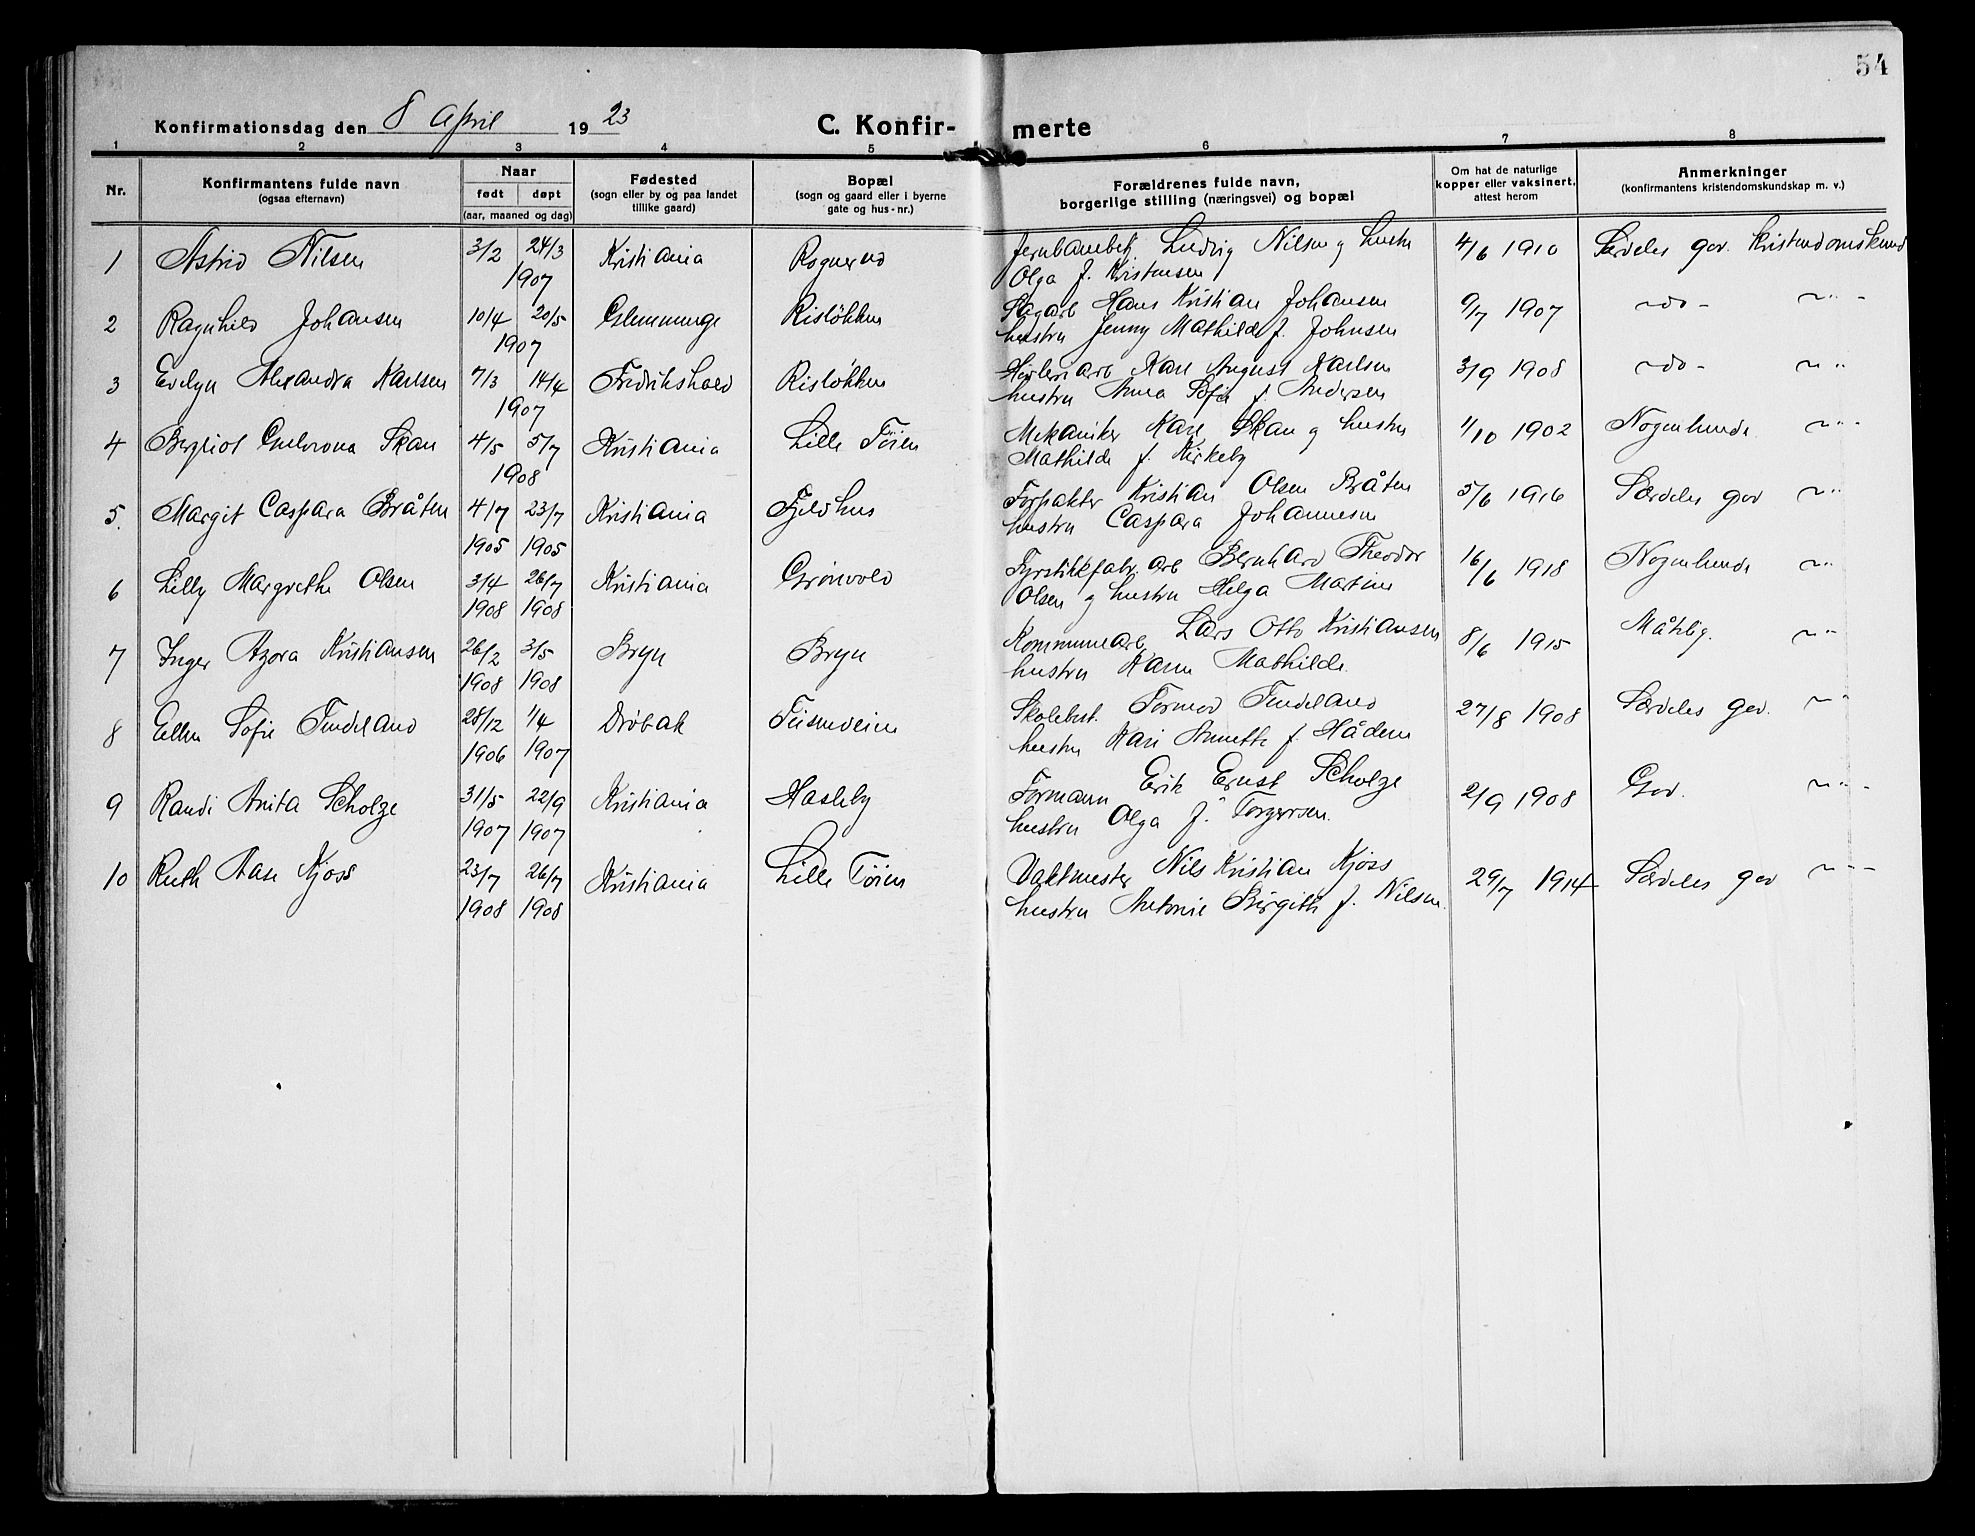 54
Konfirmationsdag den 8 April 1923 C. Konfir- merte
1 2 3 4 5 6 7 8
Nr. Konfirmantens fulde navn (ogsaa efternavn) Naar født døpt (aar, maaned og dag) Fødested (sogn eller by og paa landet tillike gaard) Bopæl (sogn og gaard eller i byerne gate og hus-nr.) Forældrenes fulde navn, borgerlige stilling (næringsvei) og bopæl Om hat de naturlige kopper eller vaksinert, attest herom Anmerkninger (konfirmantens kristendomskundskap m. v.)
1 Astrid Nilsen 3/2 24/3 Kristiania Rognerud Jernbanebetj. Ludvig Nilsen og hustru 4/6 1910 Særdeles god. Kristendomskund
1907 Olga f. Kristensen
2 Ragnhild Johansen 10/4 20/5 Glemminge Risløkken Sagarb Hans Kristian Johansen 9/7 1907 - do - - " -
1907 hustru Jenny Mathilde f. Johnsen
3 Evelyn Alexandra Karlsen 7/3 14/4 Fredrikshald Risløkken Karl August Karlsen 3/9 1908 - do - - "
1907 hustru Anna Sofie f. Andersen
4 Bergliot Skau 4/5 5/7 Kristiania Lille Tøien Mekaniker Karl Skau og hustru 1/10 1902 Nogenlunde - " -
1908 Mathilde f. Kirkeby
5. Margit Caspara Bråten 4/7 23/7 Kristiania Fjeldhus Forpakter Kristian Olsen Bråten 5/6 1916 Særdeles god - "
1905 1905 hustru Caspara Johannesen
6 Lilly Margrethe Olsen 3/4 26/7 Kristiania Grønvold Fyrstikkfabr. arb Bernhard Theodor 16/6 1918 Nogenlunde - "
1908 1908 Olsen og hustru Helga Martine
7 Inger Azora Kristiansen 26/2 3/5 Bryn Bryn Kommunearb. Lars Otto Kristiansen 8/6 1915 Måtelig. - "
1908 1908 hustru Karen Mathilde.
8 Ellen Sofie Tindeland 28/12 1/4 Drøbak Teisenveien Skolebest. Tormod Tindeland 27/8 1908 Særdeles god. - "
1906 1907 hustru Kari Annette f. Hådem
9 Randi Anita Scholze 31/5 22/9 Kristiania Hasleby Formann Erik Ernst Scholze 2/9 1908 God. - " -
1907 1907 hustru Olga f. Torgersen.
10 Ruth Aase Kjoss 23/7 26/7 Kristiania Lille Tøien Vaktmester Nils Kristian Kjoss 29/7 1914 Særdeles god - " -
1908 1908 hustru Antonie Birgitte f. Nilsen.